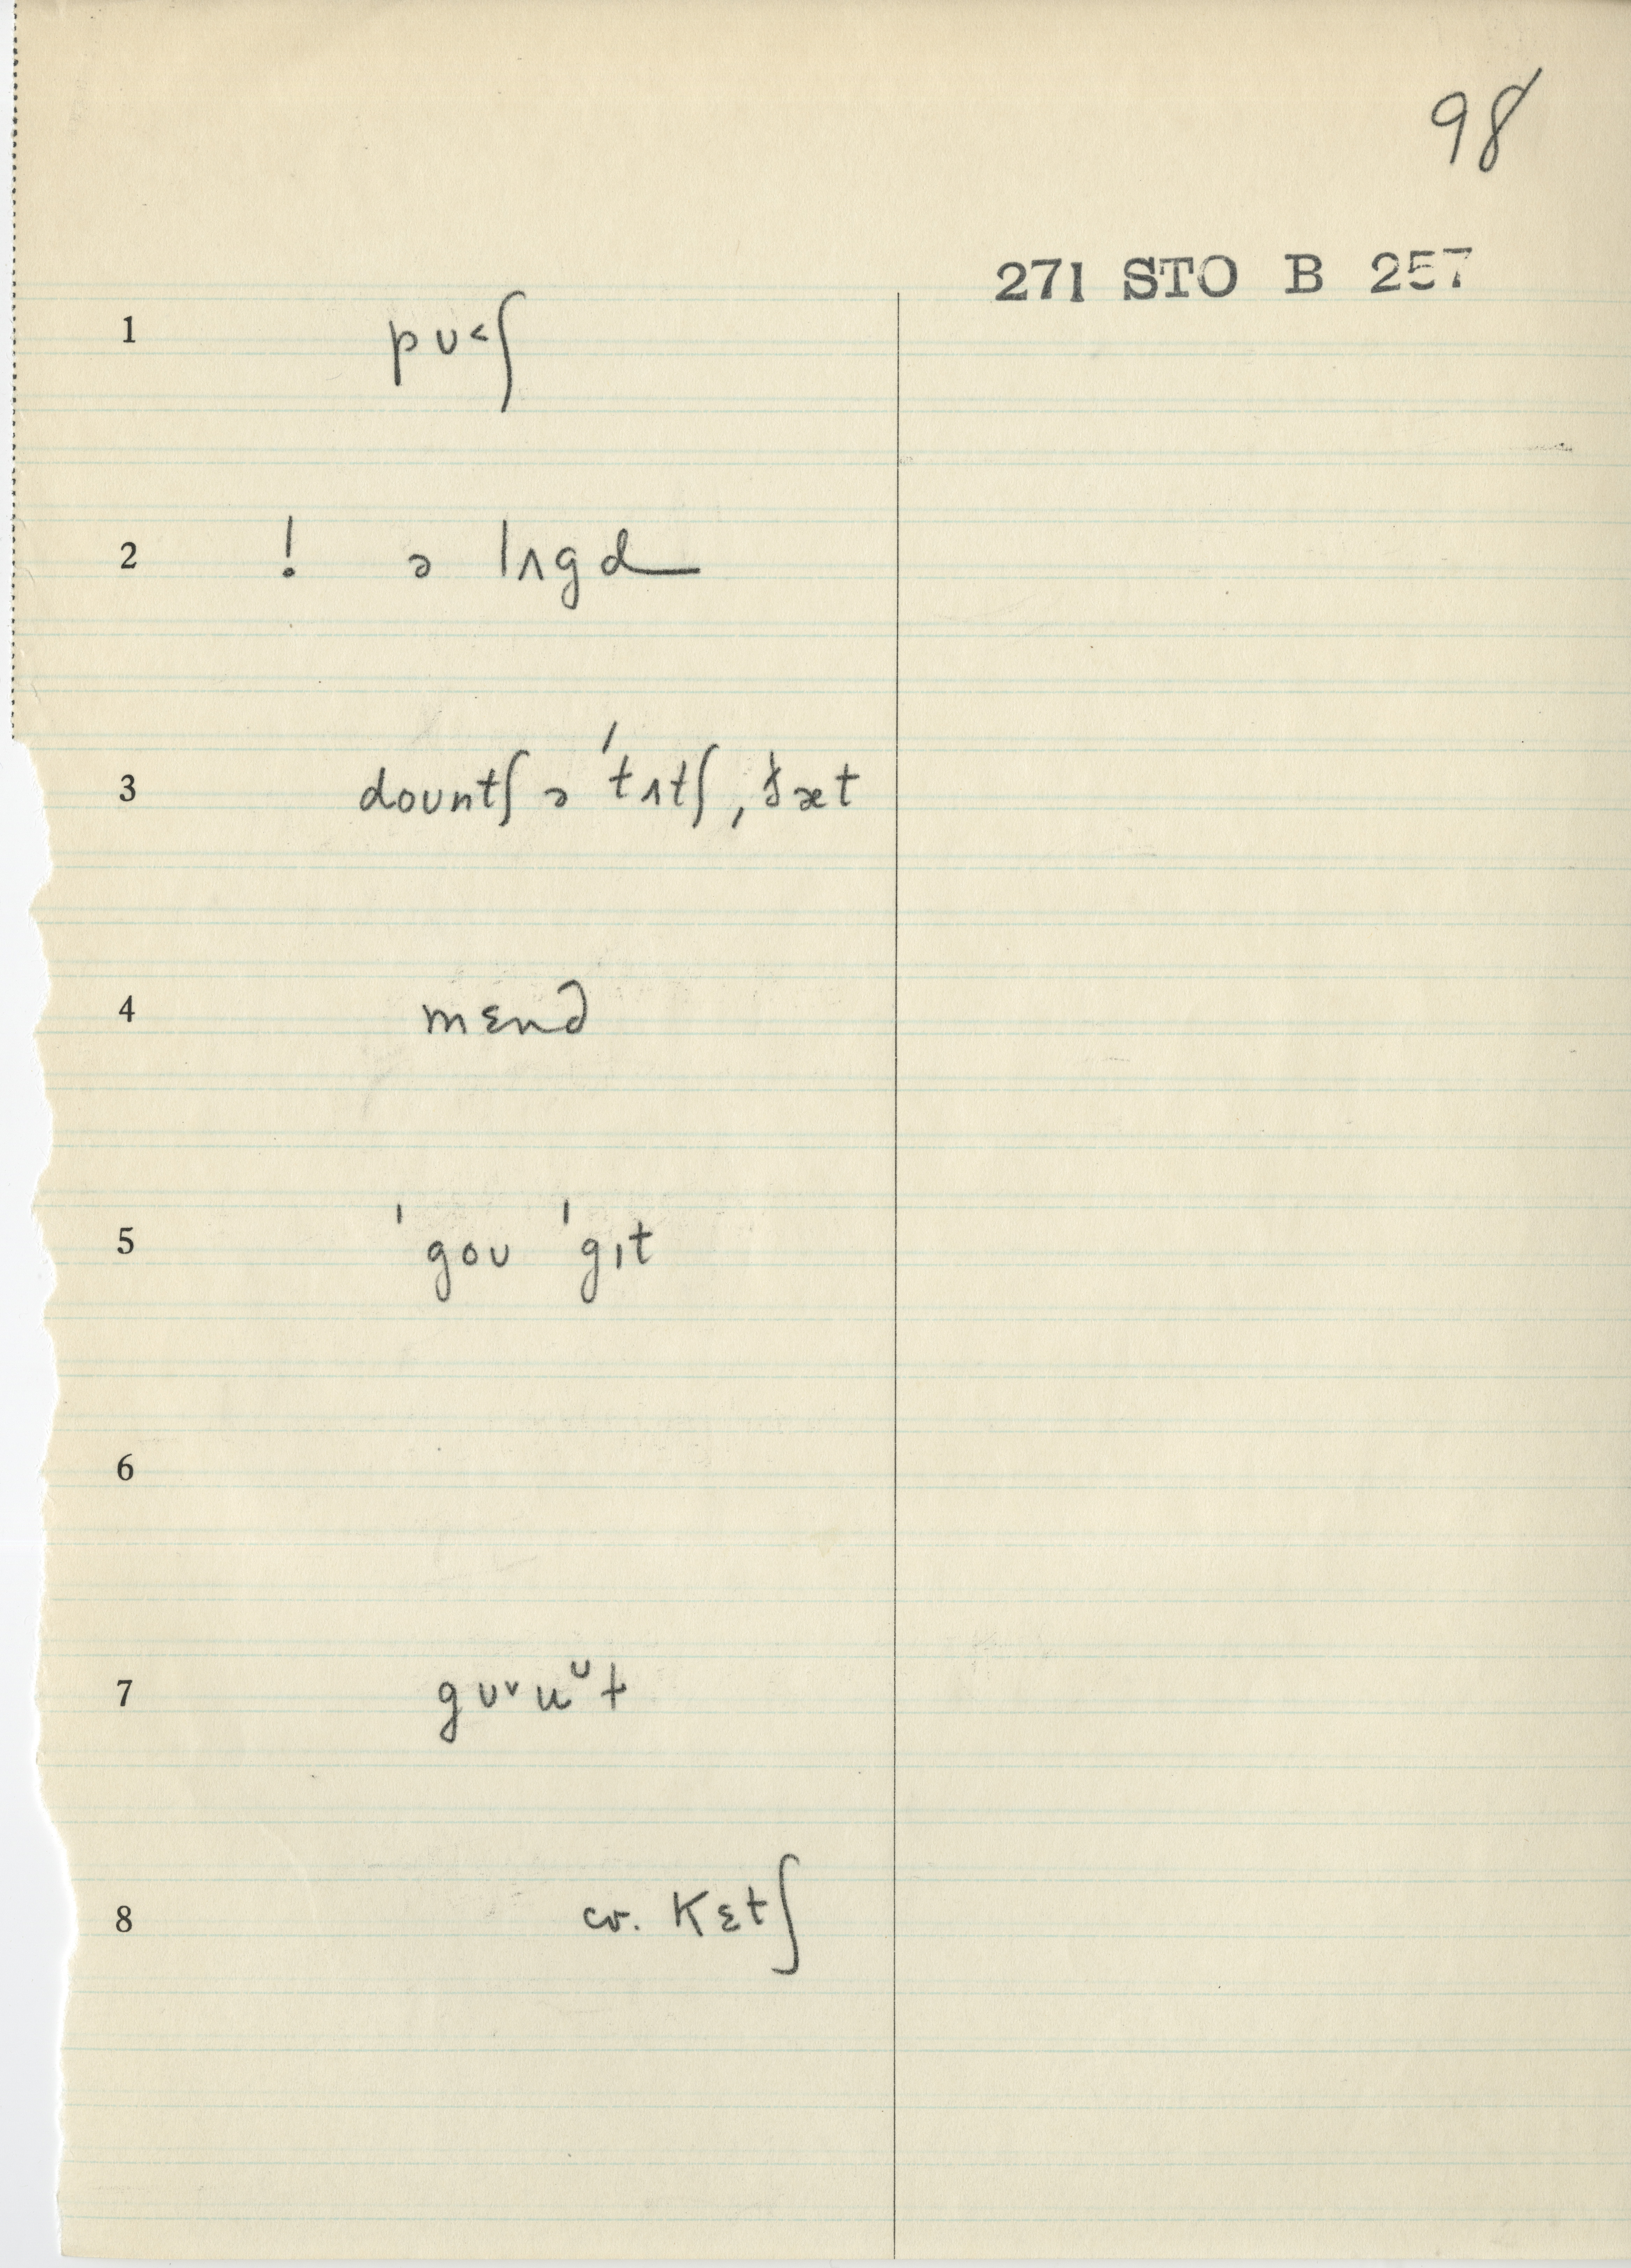 98
271 STO B 257
1 pʊ˂ʃ
2 ! ə lʌgd
3 doʊntʃ ə ˈtʌtʃ, ðæt
4 mɛnd
5 ˈgoʊ ˈgɪt
6
7 gʊ˅uᶷt
8 cv. kɛtʃ